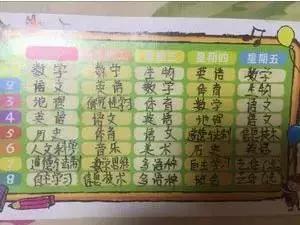 星期四 星期五
数学 数学 生物 英语 数学
2 语文 英语 数学 体育 生物
3 地理 体育 数学 语文
4 英语 语文 英语 地理 语文
5 历史 体育 语文 体育
6 音乐 美术 历史
7 道德与法治 数学思维 多语种 自主学习
8 自主学习 信息技术 多语种 班会